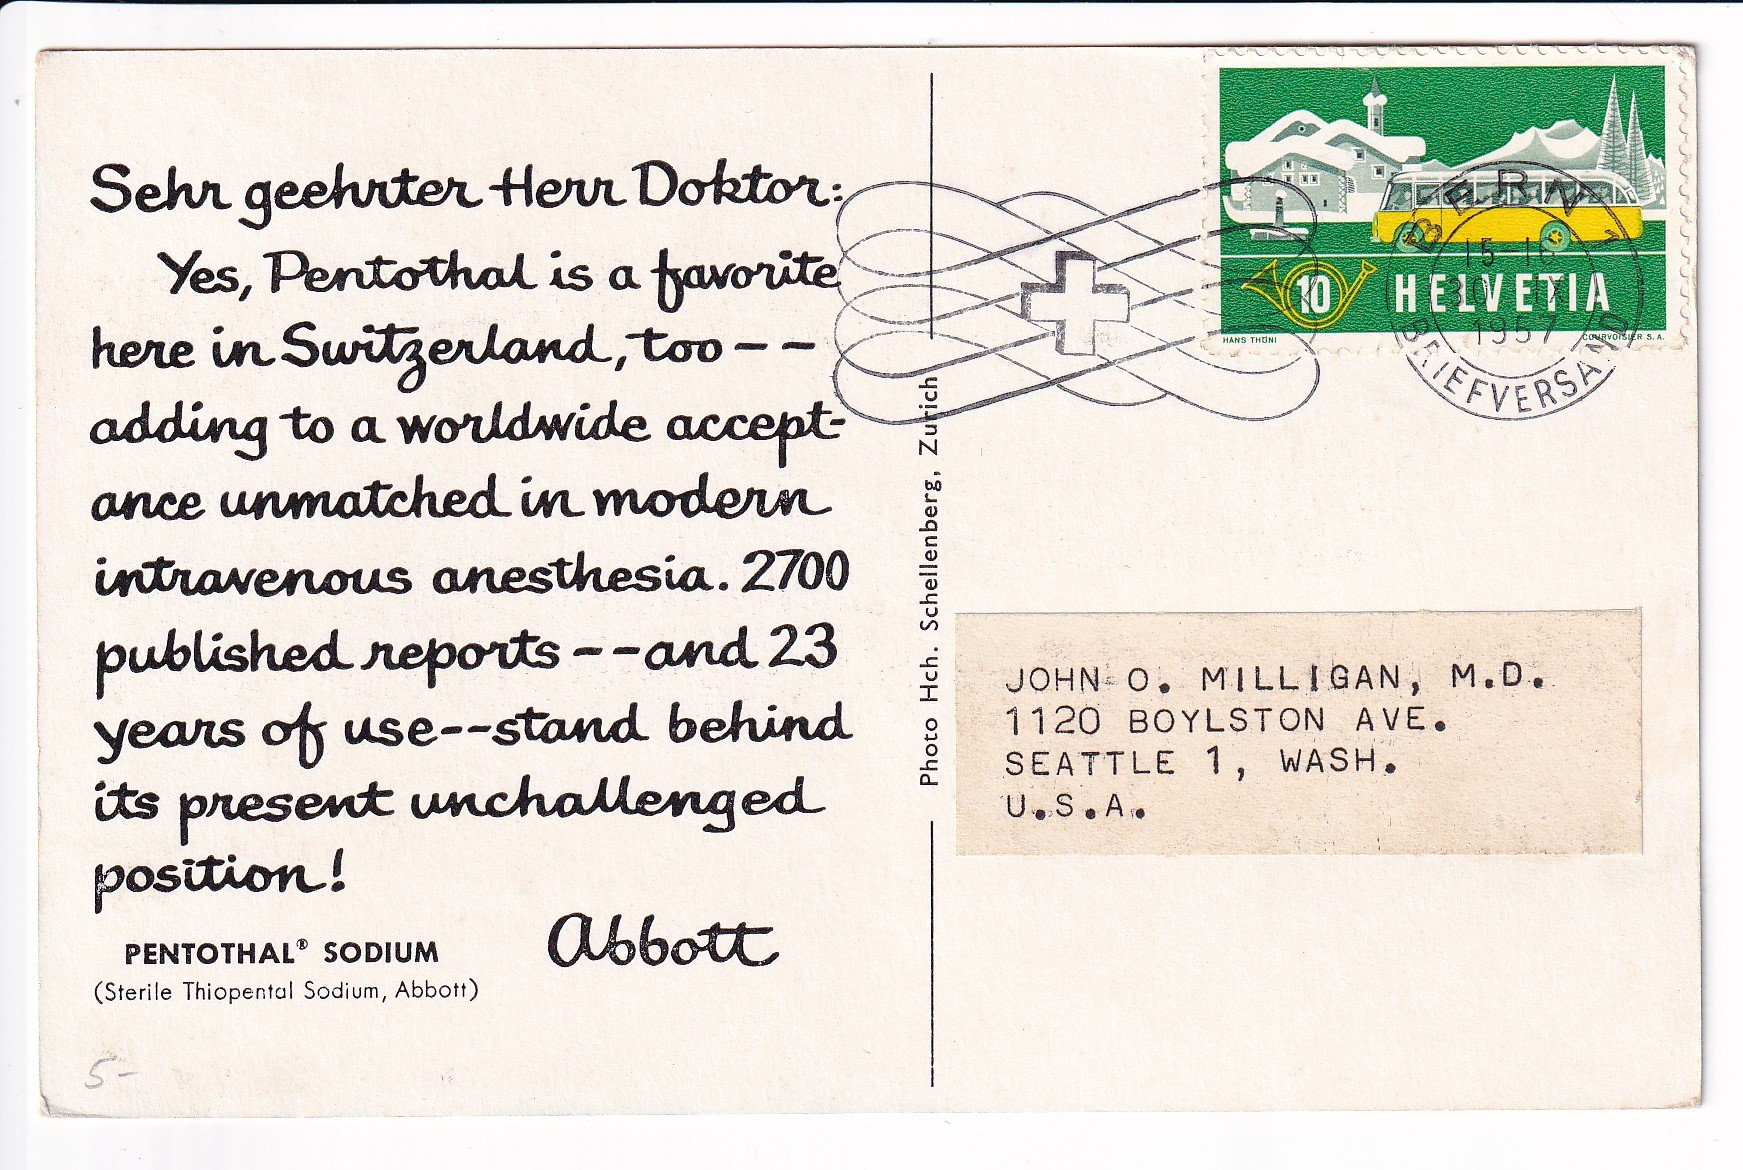 Sehr geehrter Herr Doktor:
Yes, Pentothal is a favorite
here in Switzerland, too--
adding to a worldwide accept-
ance unmatched in modern
intravenous anesthesia. 2700
published reports--and 23
years of use--stand behind
its present unchallenged
position!
Abbott
PENTOTHAL® SODIUM
(Sterile Thiopental Sodium, Abbott)
5-
Photo Hch. Schellenberg, Zurich
10 HELVETIA
HANS THÖNI
COURVOISIER S.A.
BERN 1
15-16
1957
BRIEFVERSAND
JOHN O. MILLIGAN, M.D.
1120 BOYLSTON AVE.
SEATTLE 1, WASH.
U.S.A.